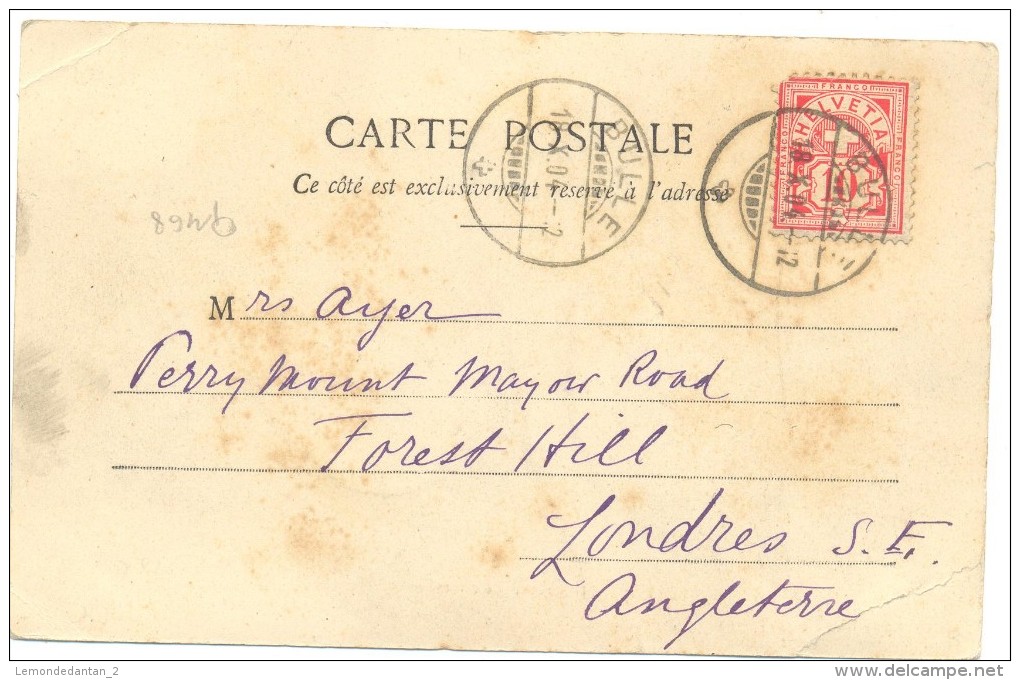 CARTE POSTALE
Ce côté est exclusivement réservé à l'adresse
BULLE
18.X.04.-12
FRANCO
HELVETIA
FRANCO
FRANCO
10
BULLE
18.X.04.-12
9468
Mrs Ayer
Perrymount Mayow Road
Forest Hill
Londres S.E.
Angleterre
Lemondedantan_2
delcampe.net